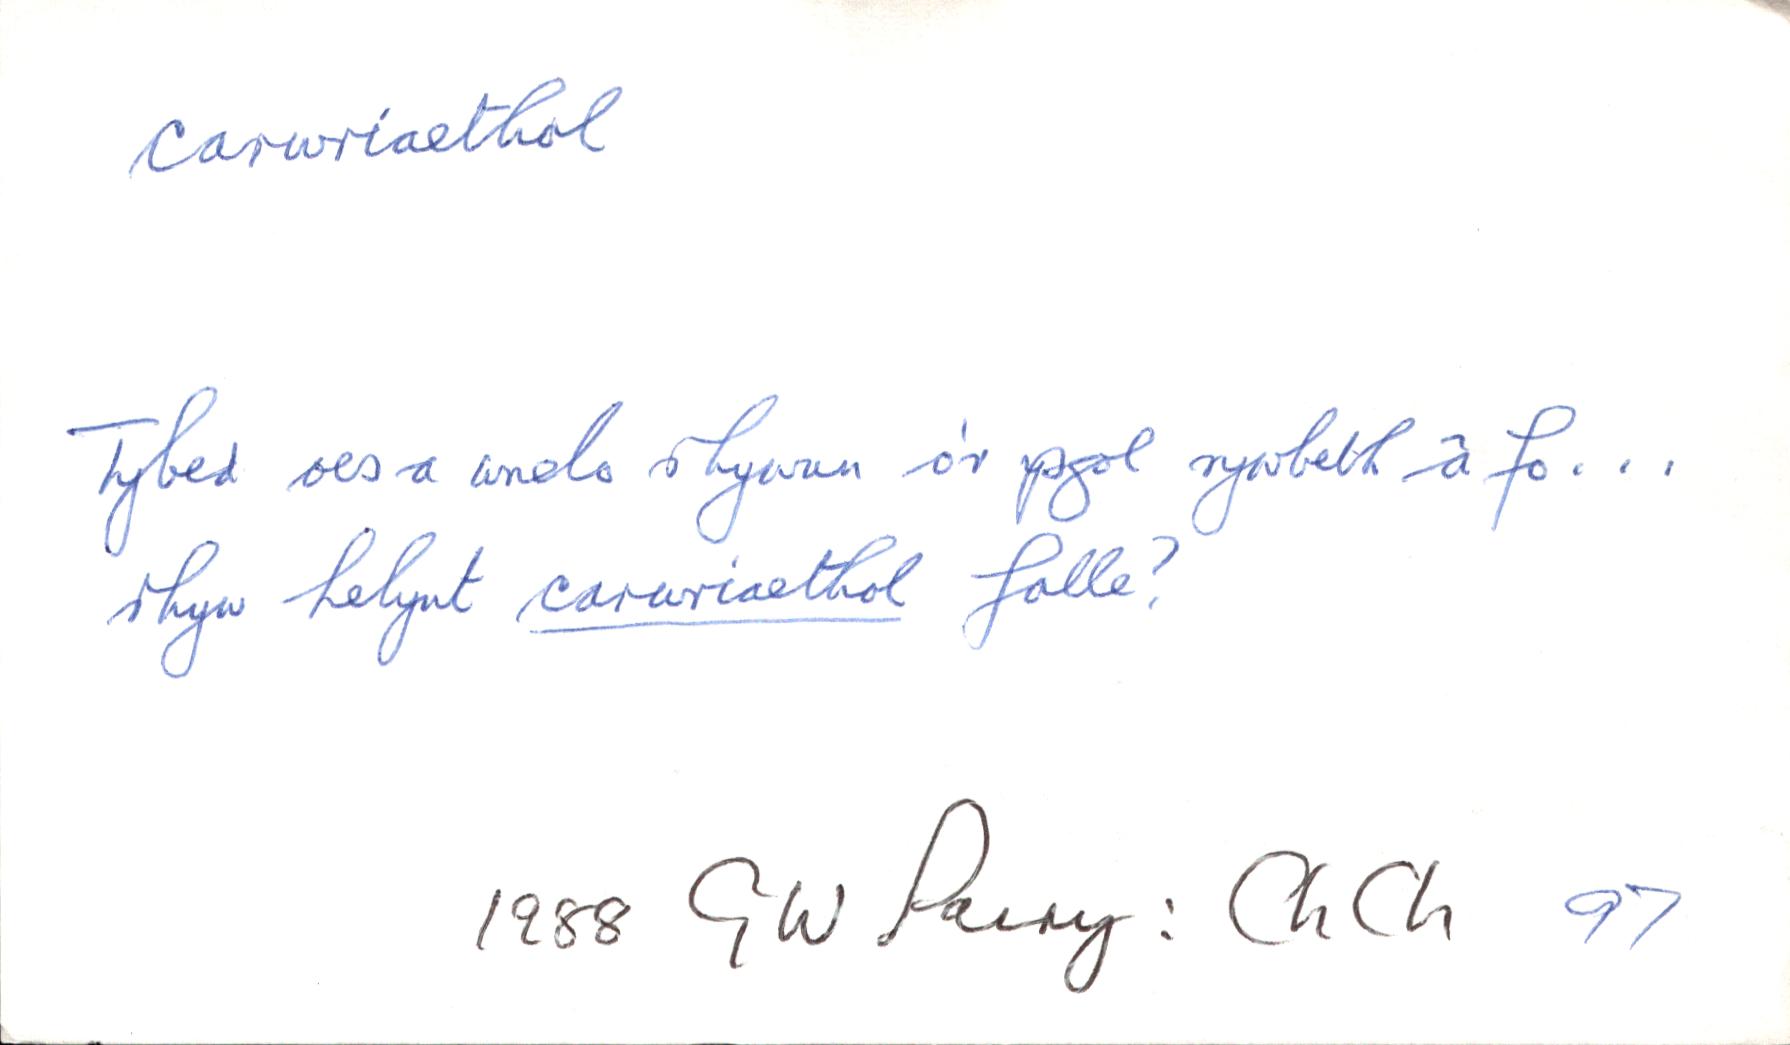 carwriaethol
Tybed oes a wnelo rhywun o'r ysgol rywbeth â fo...
rhyw helynt carwriaethol falle?
1988 GW Parry: ChCh 97